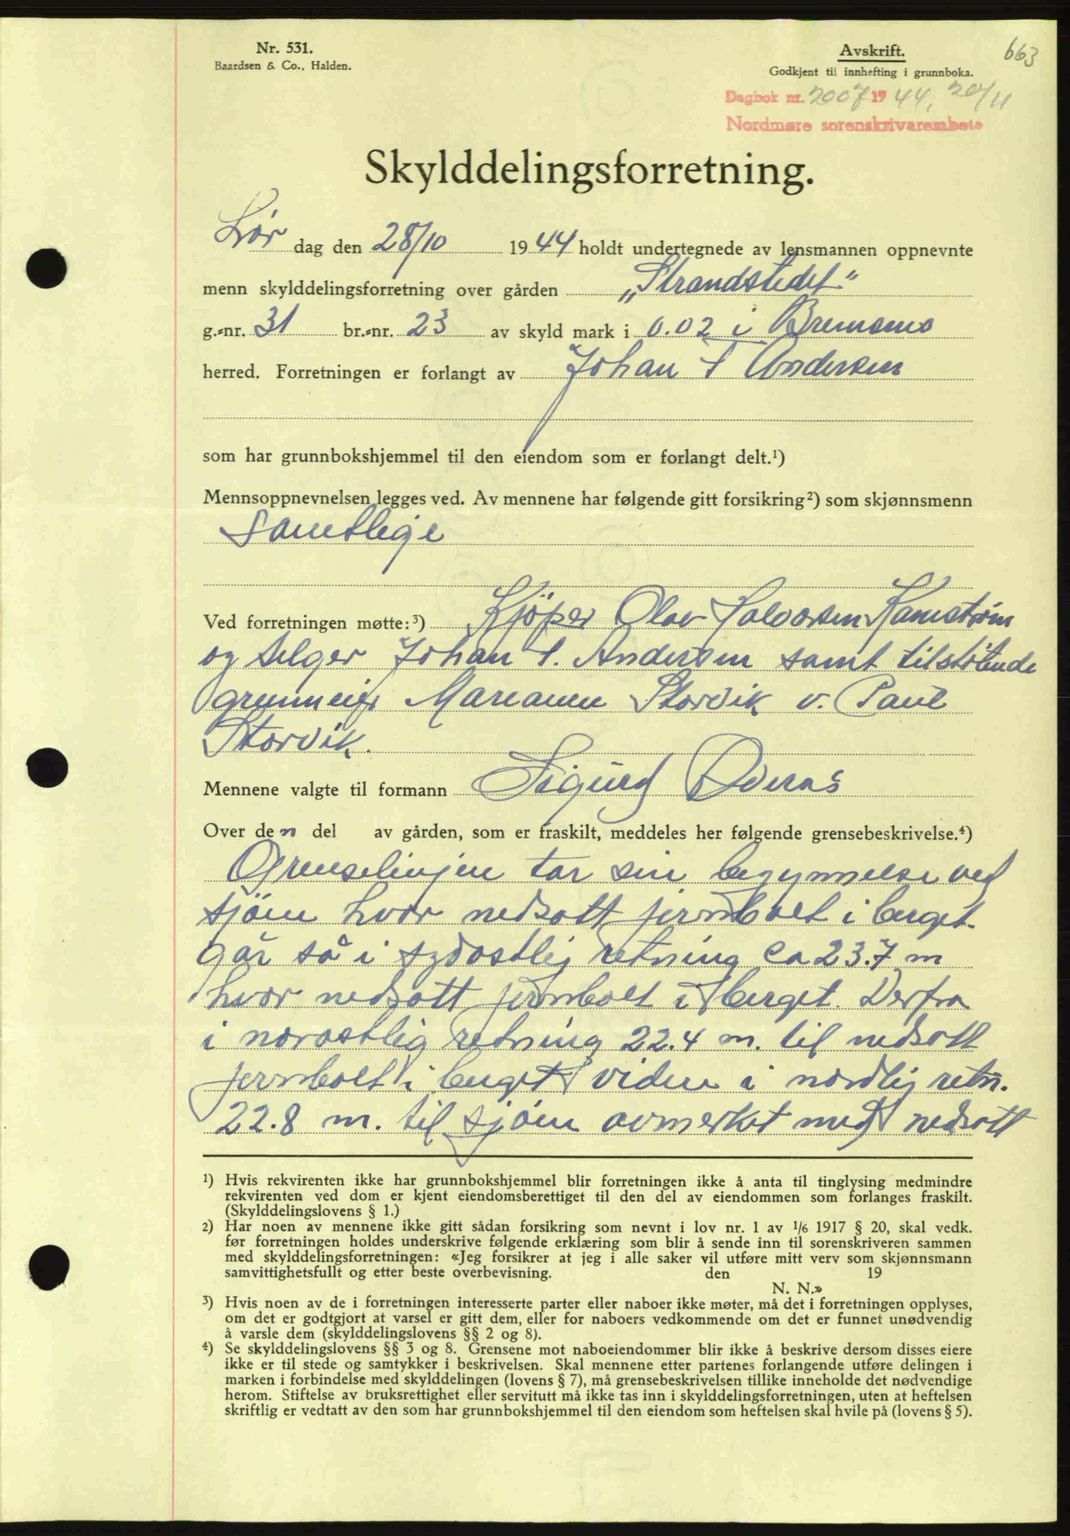 Nr. 531.
Baardsen & Co., Halden.
Avskrift.
Godkjent til innhefting i grunnboka.
663
Dagbok nr. 2007 1944, 20/11
Nordmøre sorenskrivarembete
Skylddelingsforretning.
Lør dag den 28/10 1944 holdt undertegnede av lensmannen oppnevnte
menn skylddelingsforretning over gården „Strandstedet"
g.-nr. 31 br.-nr. 23 av skyld mark i 0.02 i Bremsnes
herred. Forretningen er forlangt av Johan Andersen
som har grunnbokshjemmel til den eiendom som er forlangt delt.¹)
Mennsoppnevnelsen legges ved. Av mennene har følgende gitt forsikring²) som skjønnsmenn
Samtlige
Ved forretningen møtte:³) Kjöper Olav Halvorsen Kamstrøm
og selger Johan Andersen samt tilstötende
grunneier Marianne Storvik v. Paul
Storvik.
Mennene valgte til formann Sigurd Överas
Over den del av gården, som er fraskilt, meddeles her følgende grensebeskrivelse.⁴)
Grenselinjen tar sin begynnelse ved
sjöen hvor nedsatt jernbolt i berget.
går så i sydostlig retning ca 23.7 m
hvor nedsatt jernbolt i berget. Derfra
i nordostlig retning 22.4 m. til nedsatt
jernbolt i berget videre i nordlig retn.
22.8 m. til sjöen avmerket med nedsatt
¹) Hvis rekvirenten ikke har grunnbokshjemmel blir forretningen ikke å anta til tinglysing medmindre
rekvirenten ved dom er kjent eiendomsberettiget til den del av eiendommen som forlanges fraskilt.
(Skylddelingslovens § 1.)
²) Har noen av mennene ikke gitt sådan forsikring som nevnt i lov nr. 1 av 1/6 1917 § 20, skal vedk.
før forretningen holdes underskrive følgende erklæring som blir å sende inn til sorenskriveren sammen
med skylddelingsforretningen: «Jeg forsikrer at jeg i alle saker vil utføre mitt verv som skjønnsmann
samvittighetsfullt og etter beste overbevisning. den 19
N. N.»
³) Hvis noen av de i forretningen interesserte parter eller naboer ikke møter, må det i forretningen opplyses,
om det er godtgjort at varsel er gitt dem, eller for naboers vedkommende om det er funnet unødvendig
å varsle dem (skylddelingslovens §§ 2 og 8).
⁴) Se skylddelingslovens §§ 3 og 8. Grensene mot naboeiendommer blir ikke å beskrive dersom disses eiere
ikke er til stede og samtykker i beskrivelsen. Skal mennene etter partenes forlangende utføre delingen i
marken i forbindelse med skylddelingen (lovens § 7), må grensebeskrivelsen tillike inneholde det nødvendige
herom. Stiftelse av bruksrettighet eller servitutt må ikke tas inn i skylddelingsforretningen, uten at heftelsen
skriftlig er vedtatt av den som har grunnbokshjemmel til den eiendom som heftelsen skal hvile på (lovens § 5).